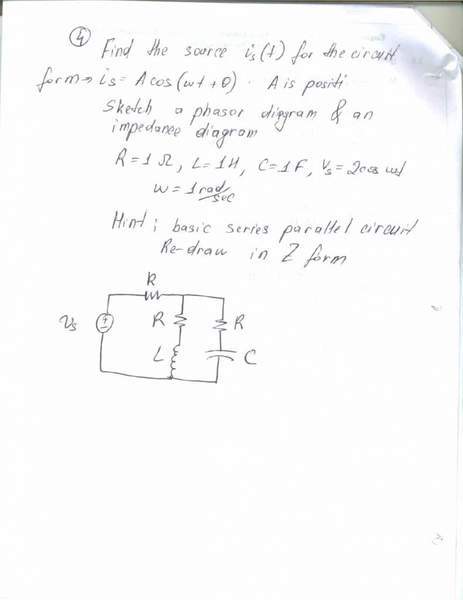 ④ Find the source is(t) for the circuit
form → is = A cos(ωt + θ) . A is positi
Sketch a phasor diagram & an
impedance diagram
R = 1 Ω, L = 1H, C = 1F, Vs = 2cos ωt
ω = 1 rad/sec
Hint ; basic series parallel circuit
Re-draw in Z form
R
Vs + R R
L C